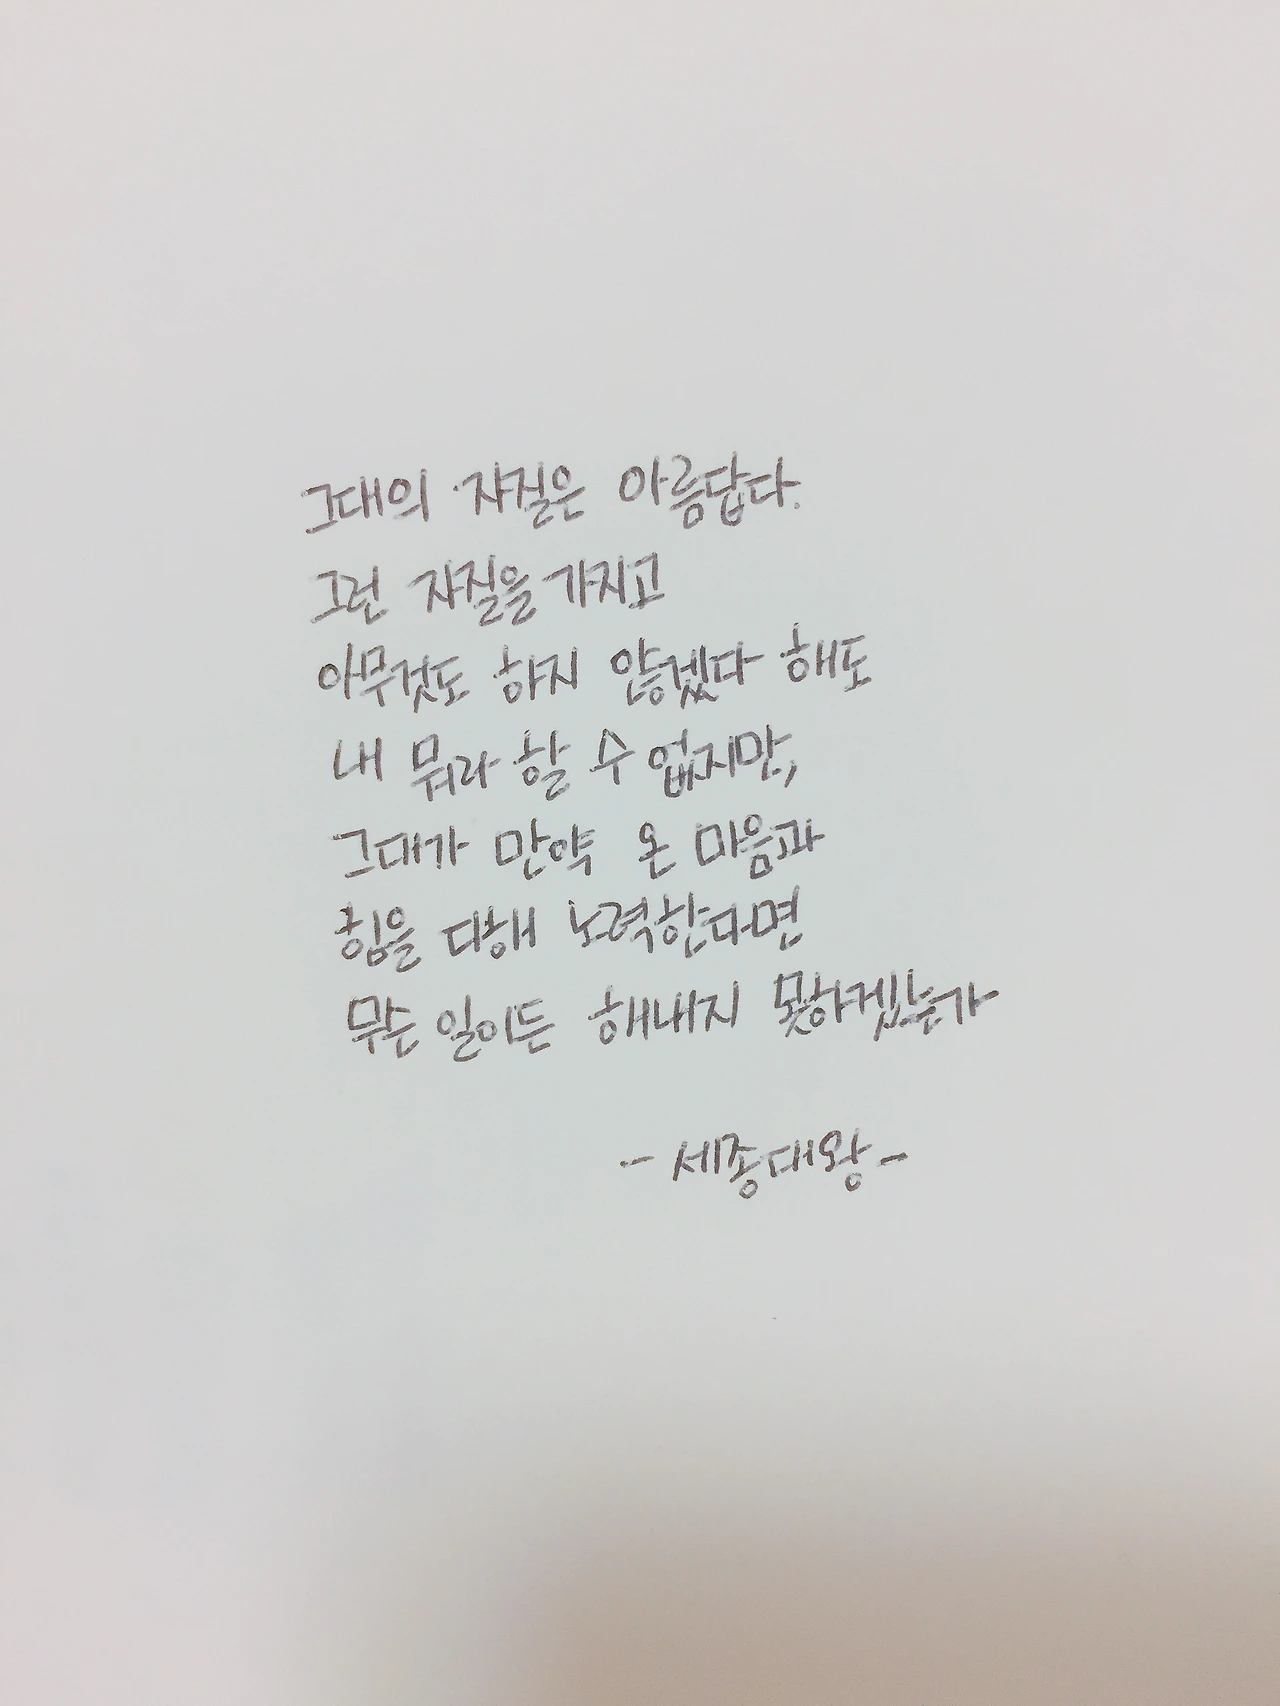 그대의 자질은 아름답다.
그런 자질을 가지고
아무것도 하지 않겠다 해도
내 뭐라 할 수 없지만,
그대가 만약 온 마음과
힘을 다해 노력한다면
무슨 일이든 해내지 못하겠는가
- 세종대왕 -